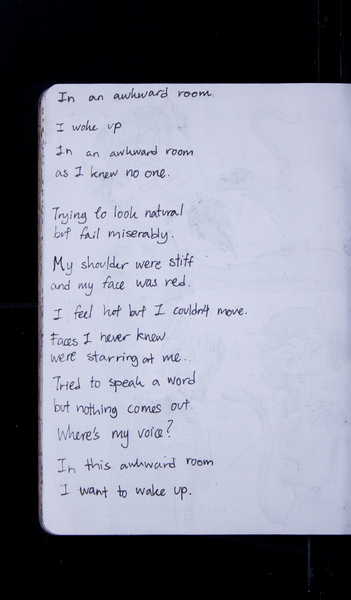 In an awkward room.
I woke up
In an awkward room
as I knew no one.
Trying to look natural
but fail miserably.
My shoulder were stiff
and my face was red.
I feel hot but I couldn't move.
Faces I never knew
were starring at me..
Tried to speak a word
but nothing comes out.
Where's my voice?
In this awkward room
I want to wake up.